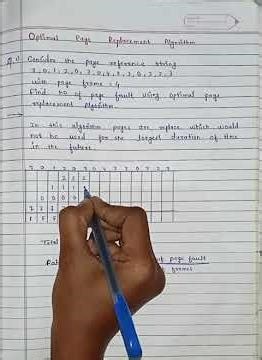 Optimal Page Replacement Algorithm
Q.1) Consider the page reference string
7, 0, 1, 2, 0, 3, 0, 4, 2, 3, 0, 3, 2, 3
with page frame = 4
Find no of page fault using optimal page
replacement Algorithm.
In this algorithm pages are replace which would
not be used for the longest duration of time
in the future.
7 0 1 2 0 3 0 4 2 3 0 3 2 3
2 2 2
1 1 1
0 0 0 0
7 7 7
Total
of page fault
frames